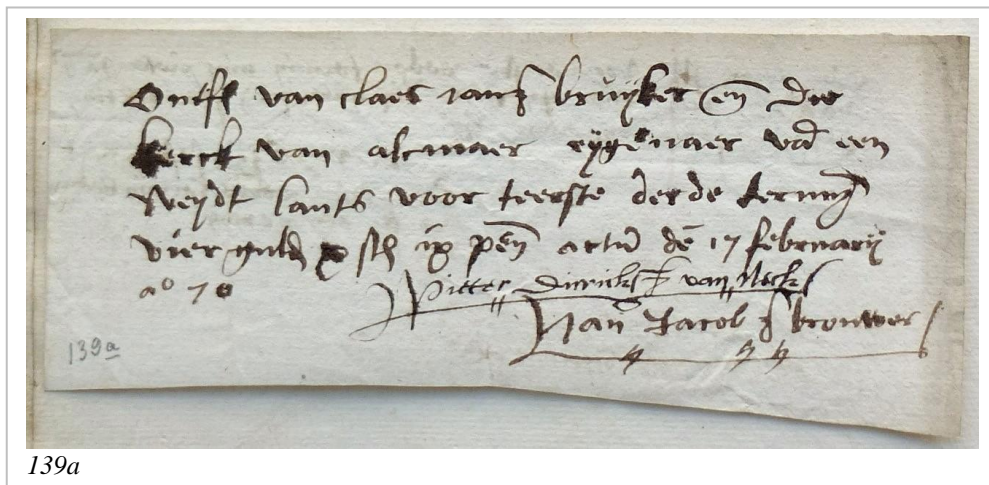 Ontfn van claes jansz bruijker en die
kerck van alcmaer eijgenaer vad een
weijdt lants voor teerste derde termijn
vier guld x sch ix pen actu den 17 februarij
ao 70
Pieter Dirricksz van Neck
Nan Jacobsz brouwer
139a
139a